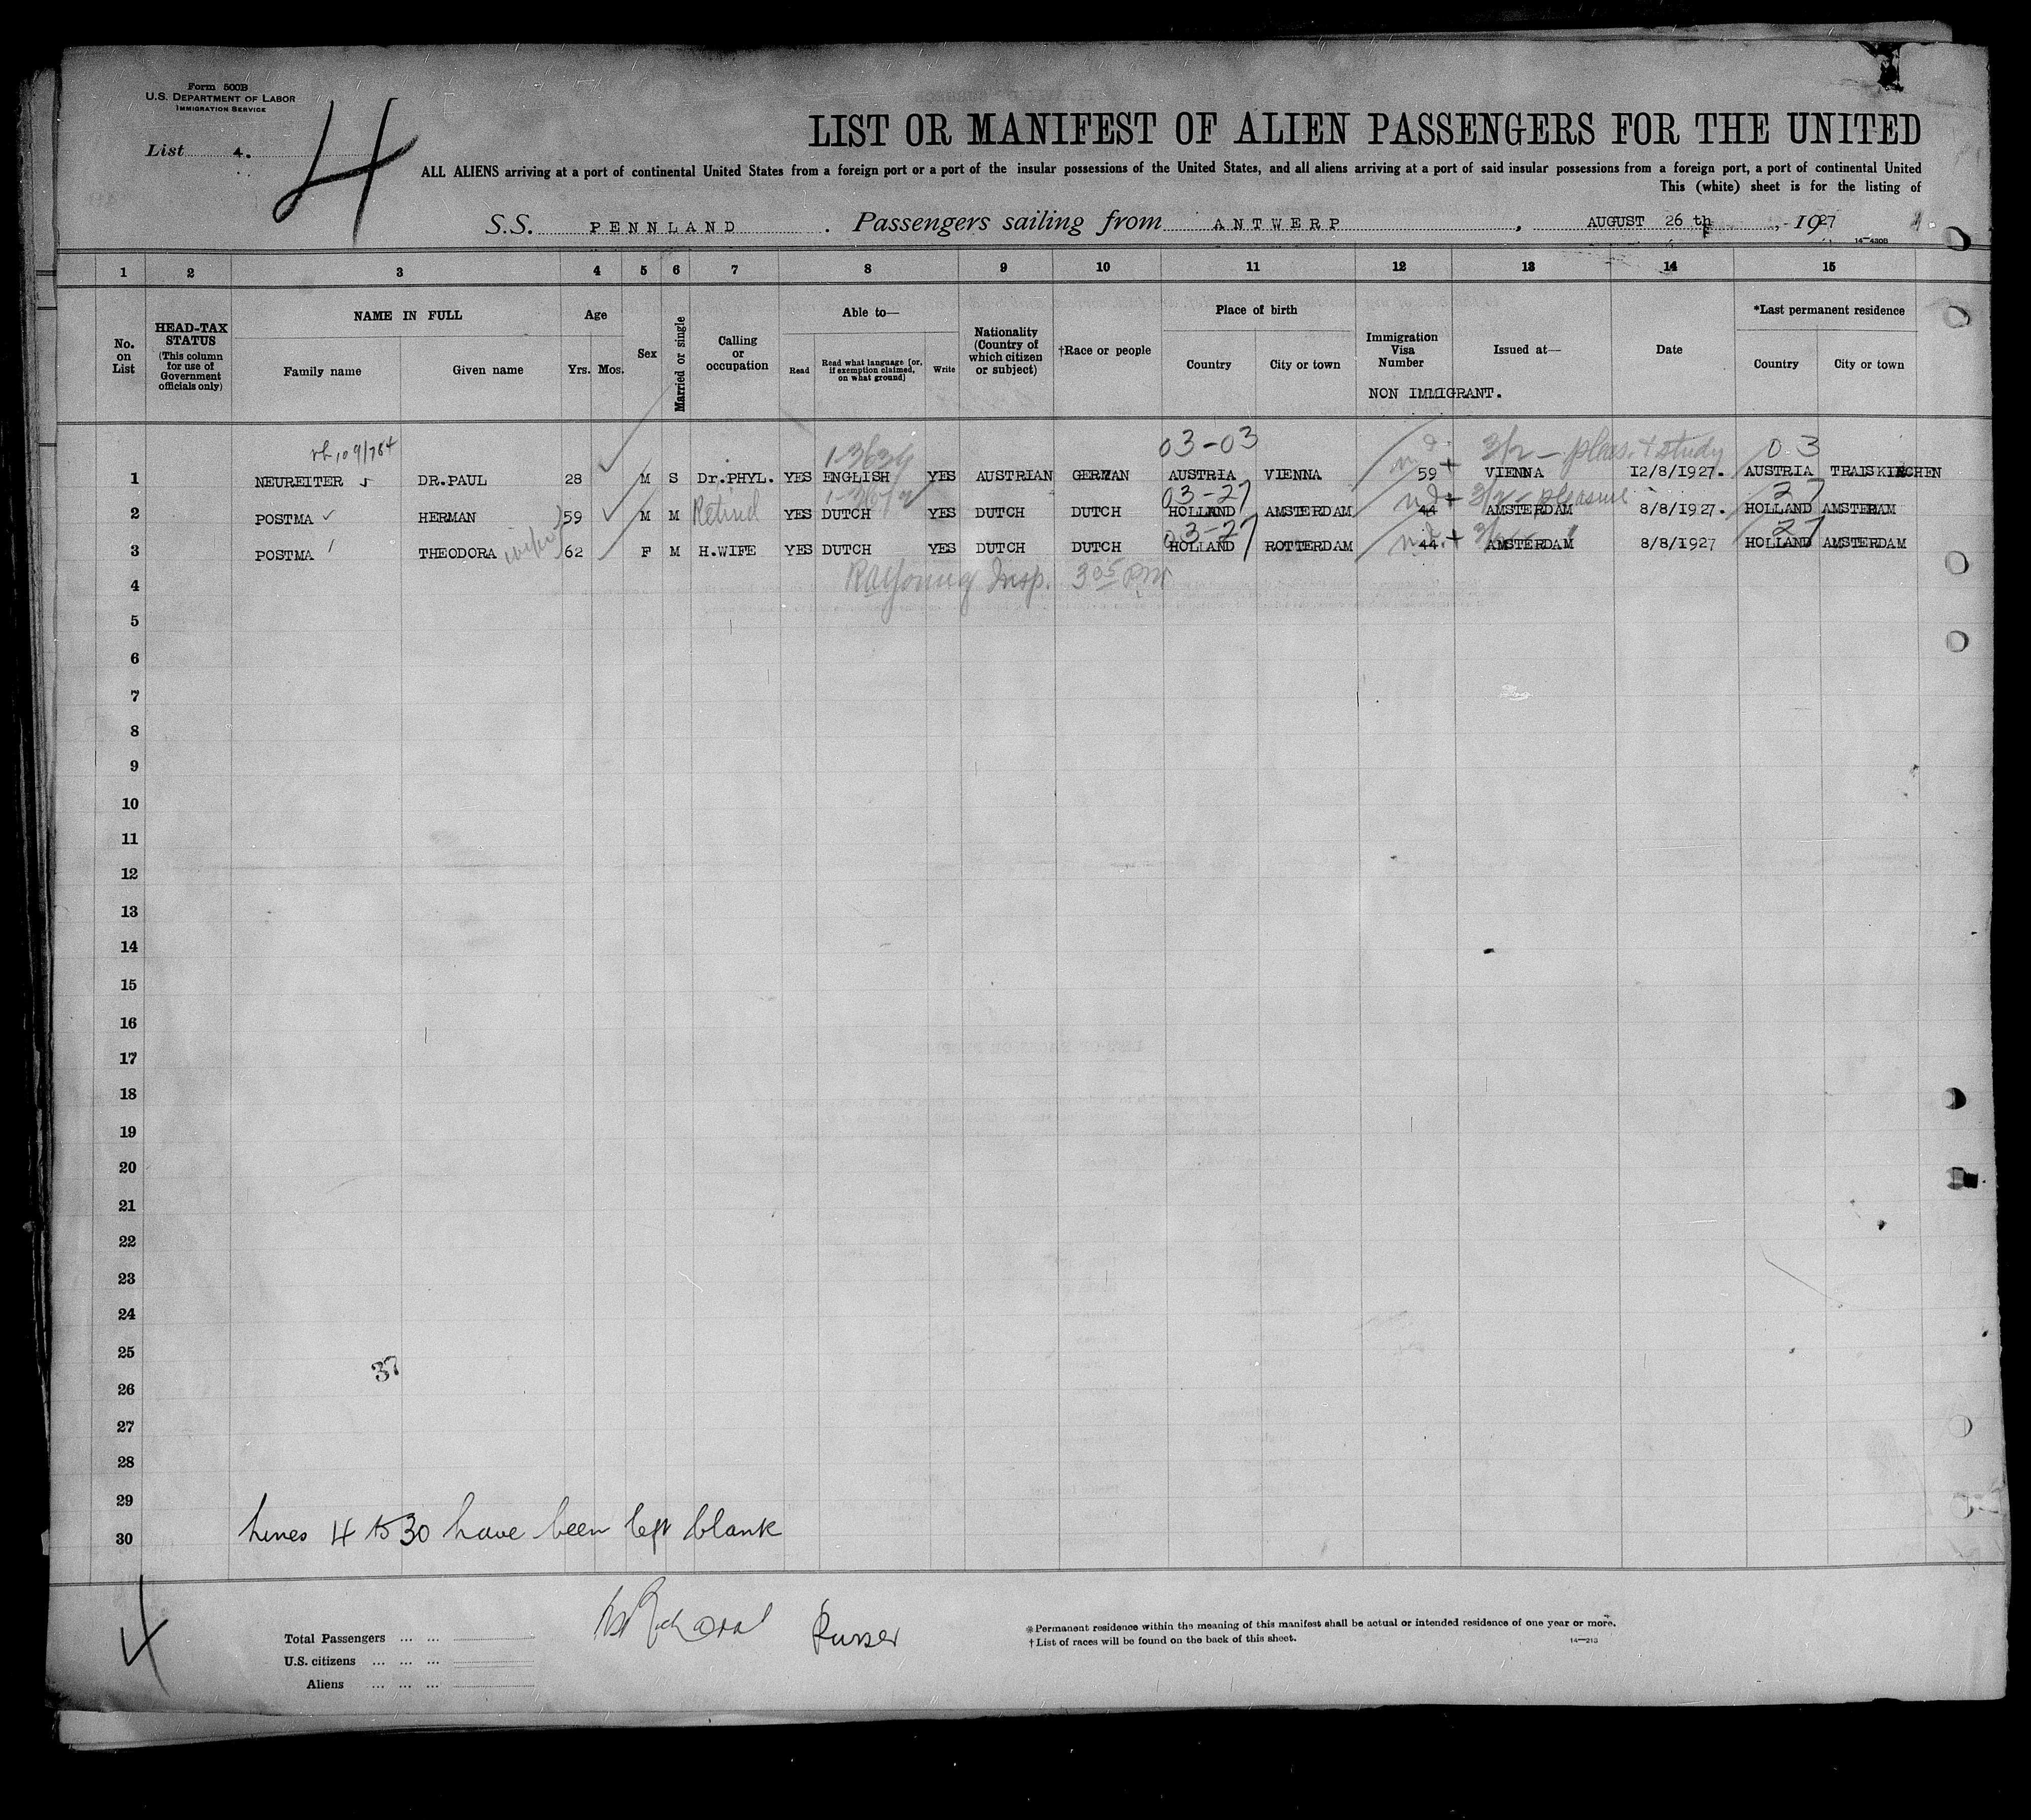 Form 500B
U.S. DEPARTMENT OF LABOR
IMMIGRATION SERVICE
List 4.
4
LIST OR MANIFEST OF ALIEN PASSENGERS FOR THE UNITED
ALL ALIENS arriving at a port of continental United States from a foreign port or a port of the insular possessions of the United States, and all aliens arriving at a port of said insular possessions from a foreign port, a port of continental United
This (white) sheet is for the listing of
S.S. PENNLAND . Passengers sailing from ANTWERP , AUGUST 26 th , 1927
14—430B
1 2 3 4 5 6 7 8 9 10 11 12 13 14 15
No. on List
HEAD-TAX STATUS (This column for use of Government officials only)
NAME IN FULL
Family name Given name
Age
Yrs. Mos.
Sex
Married or single
Calling or occupation
Able to—
Read Read what language [or, if exemption claimed, on what ground] Write
Nationality (Country of which citizen or subject)
†Race or people
Place of birth
Country City or town
Immigration Visa Number
NON IMMIGRANT.
Issued at—
Date
*Last permanent residence
Country City or town
03-03 3/2 - pleas. + study 03
1 NEUREITER DR.PAUL 28 M S Dr.PHYL. YES ENGLISH YES AUSTRIAN GERMAN AUSTRIA VIENNA 59 VIENNA 12/8/1927. AUSTRIA TRAISKIRCHEN
03-27 3/2 - pleasure 27
2 POSTMA HERMAN 59 M M Retired YES DUTCH YES DUTCH DUTCH HOLLAND AMSTERDAM 44 AMSTERDAM 8/8/1927. HOLLAND AMSTERDAM
03-27 27
3 POSTMA THEODORA 62 F M H.WIFE YES DUTCH YES DUTCH DUTCH HOLLAND ROTTERDAM 44 AMSTERDAM 8/8/1927 HOLLAND AMSTERDAM
4 Insp. 3 05 PM
5
6
7
8
9
10
11
12
13
14
15
16
17
18
19
20
21
22
23
24
25
37
26
27
28
29
30 Lines 4 to 30 have been left blank
4
Total Passengers ... ...
U.S. citizens ... ... ...
Aliens ... ... ...
Purser
* Permanent residence within the meaning of this manifest shall be actual or intended residence of one year or more.
† List of races will be found on the back of this sheet.
14—213